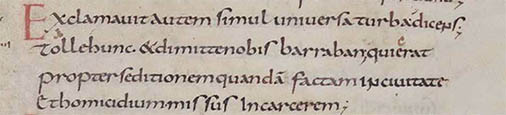 Exclamavit autem simul universa turba dicens;
Tolle hunc. & dimitte nobis barraban, qui erat
propter seditionem quandā factam in civitate
& homicidium missus in carcerem;